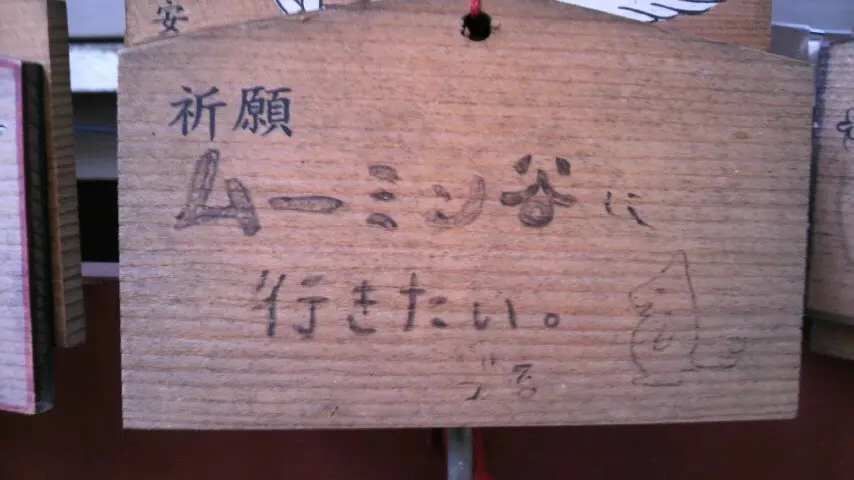 安
祈願
ムーミン谷に
行きたい。